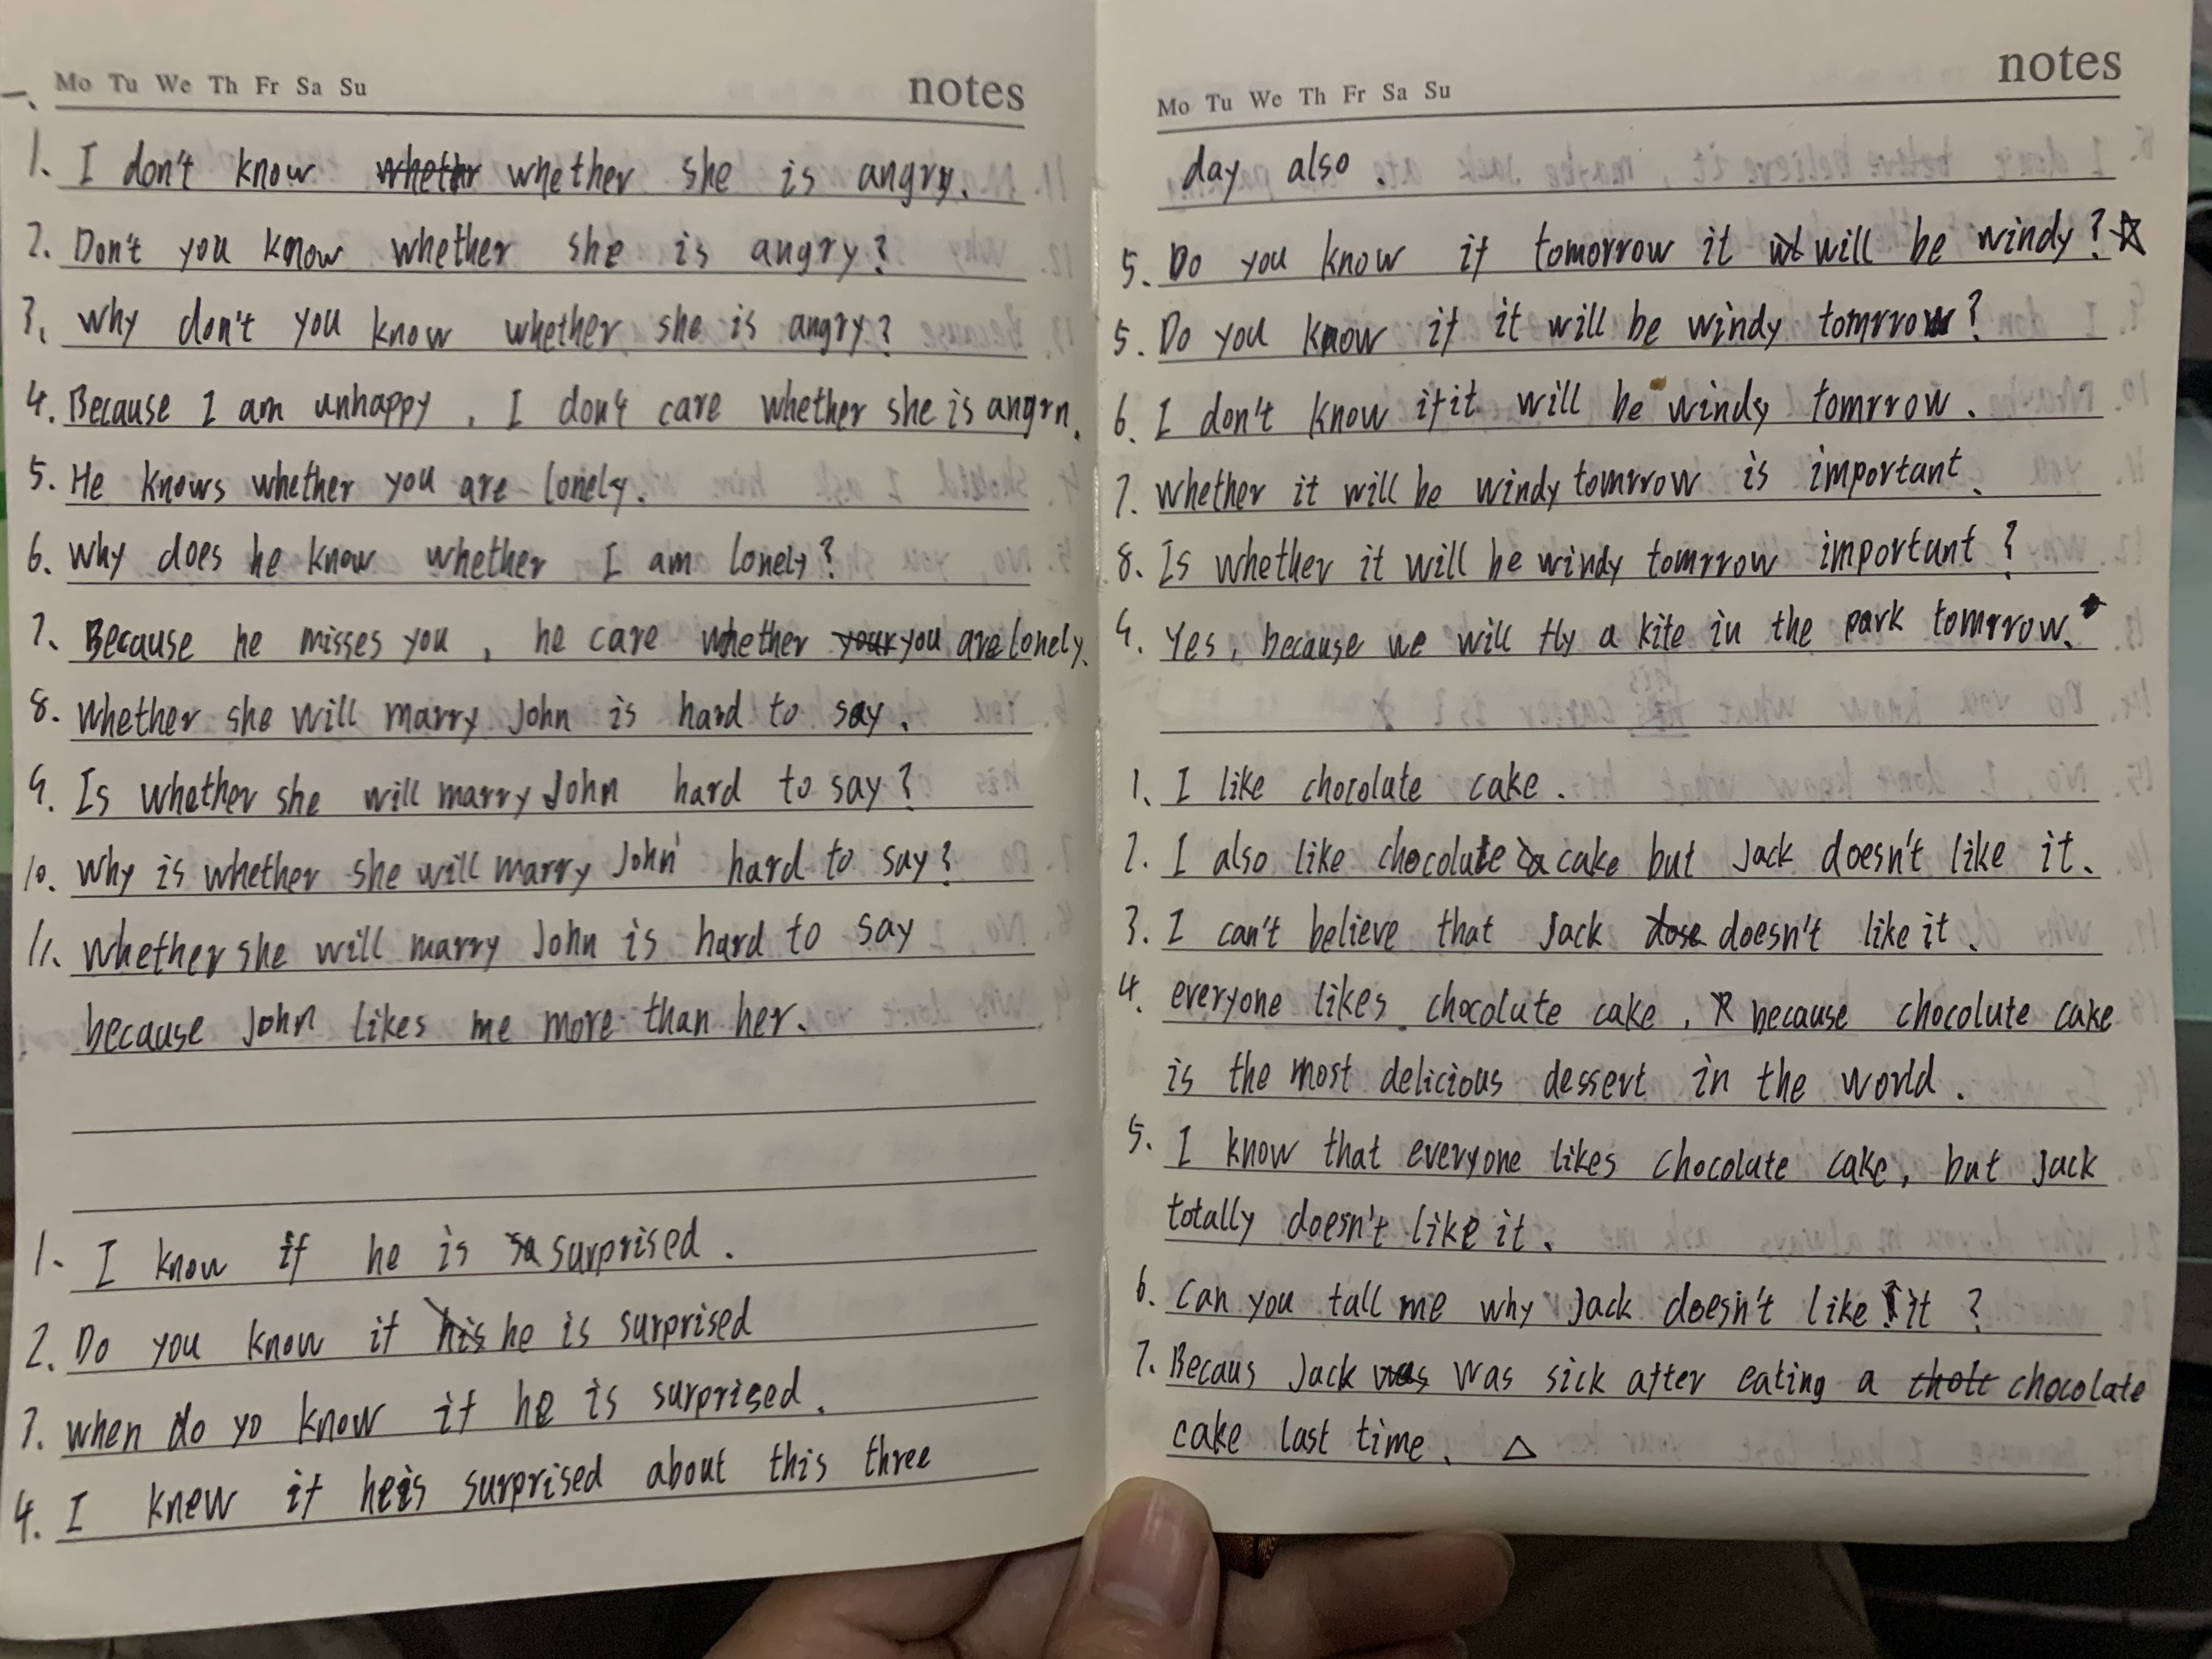 一、
Mo Tu We Th Fr Sa Su notes
1. I don't know whether she is angry.
2. Don't you know whether she is angry?
3. Why don't you know whether she is angry?
4. Because I am unhappy, I don't care whether she is angrn.
5. He knows whether you are lonely.
6. Why does he know whether I am lonely?
7. Because he misses you, he care whether you are lonely.
8. Whether she will marry John is hard to say.
9. Is whether she will marry John hard to say?
10. Why is whether she will marry John hard to say?
11. Whether she will marry John is hard to say
because John likes me more than her.
1. I know if he is surprised.
2. Do you know if he is surprised
3. when do yo know if he is surprised.
4. I knew if he is surprised about this three
Mo Tu We Th Fr Sa Su notes
day also.
5. Do you know if tomorrow it will be windy? ☆
5. Do you know if it will be windy tomrrow?
6. I don't know if it will be windy tomrrow.
7. Whether it will be windy tomrrow is important.
8. Is whether it will be windy tomrrow important?
9. Yes, because we will fly a kite in the park tomrrow.
1. I like chocolate cake.
2. I also like chocolate cake but Jack doesn't like it.
3. I can't believe that Jack doesn't like it.
4. everyone likes chocolate cake, because chocolate cake
is the most delicious dessert in the world.
5. I know that everyone likes chocolate cake, but Jack
totally doesn't like it.
6. Can you tall me why Jack doesn't like it?
7. Becaus Jack was sick after eating a chocolate
cake last time. △